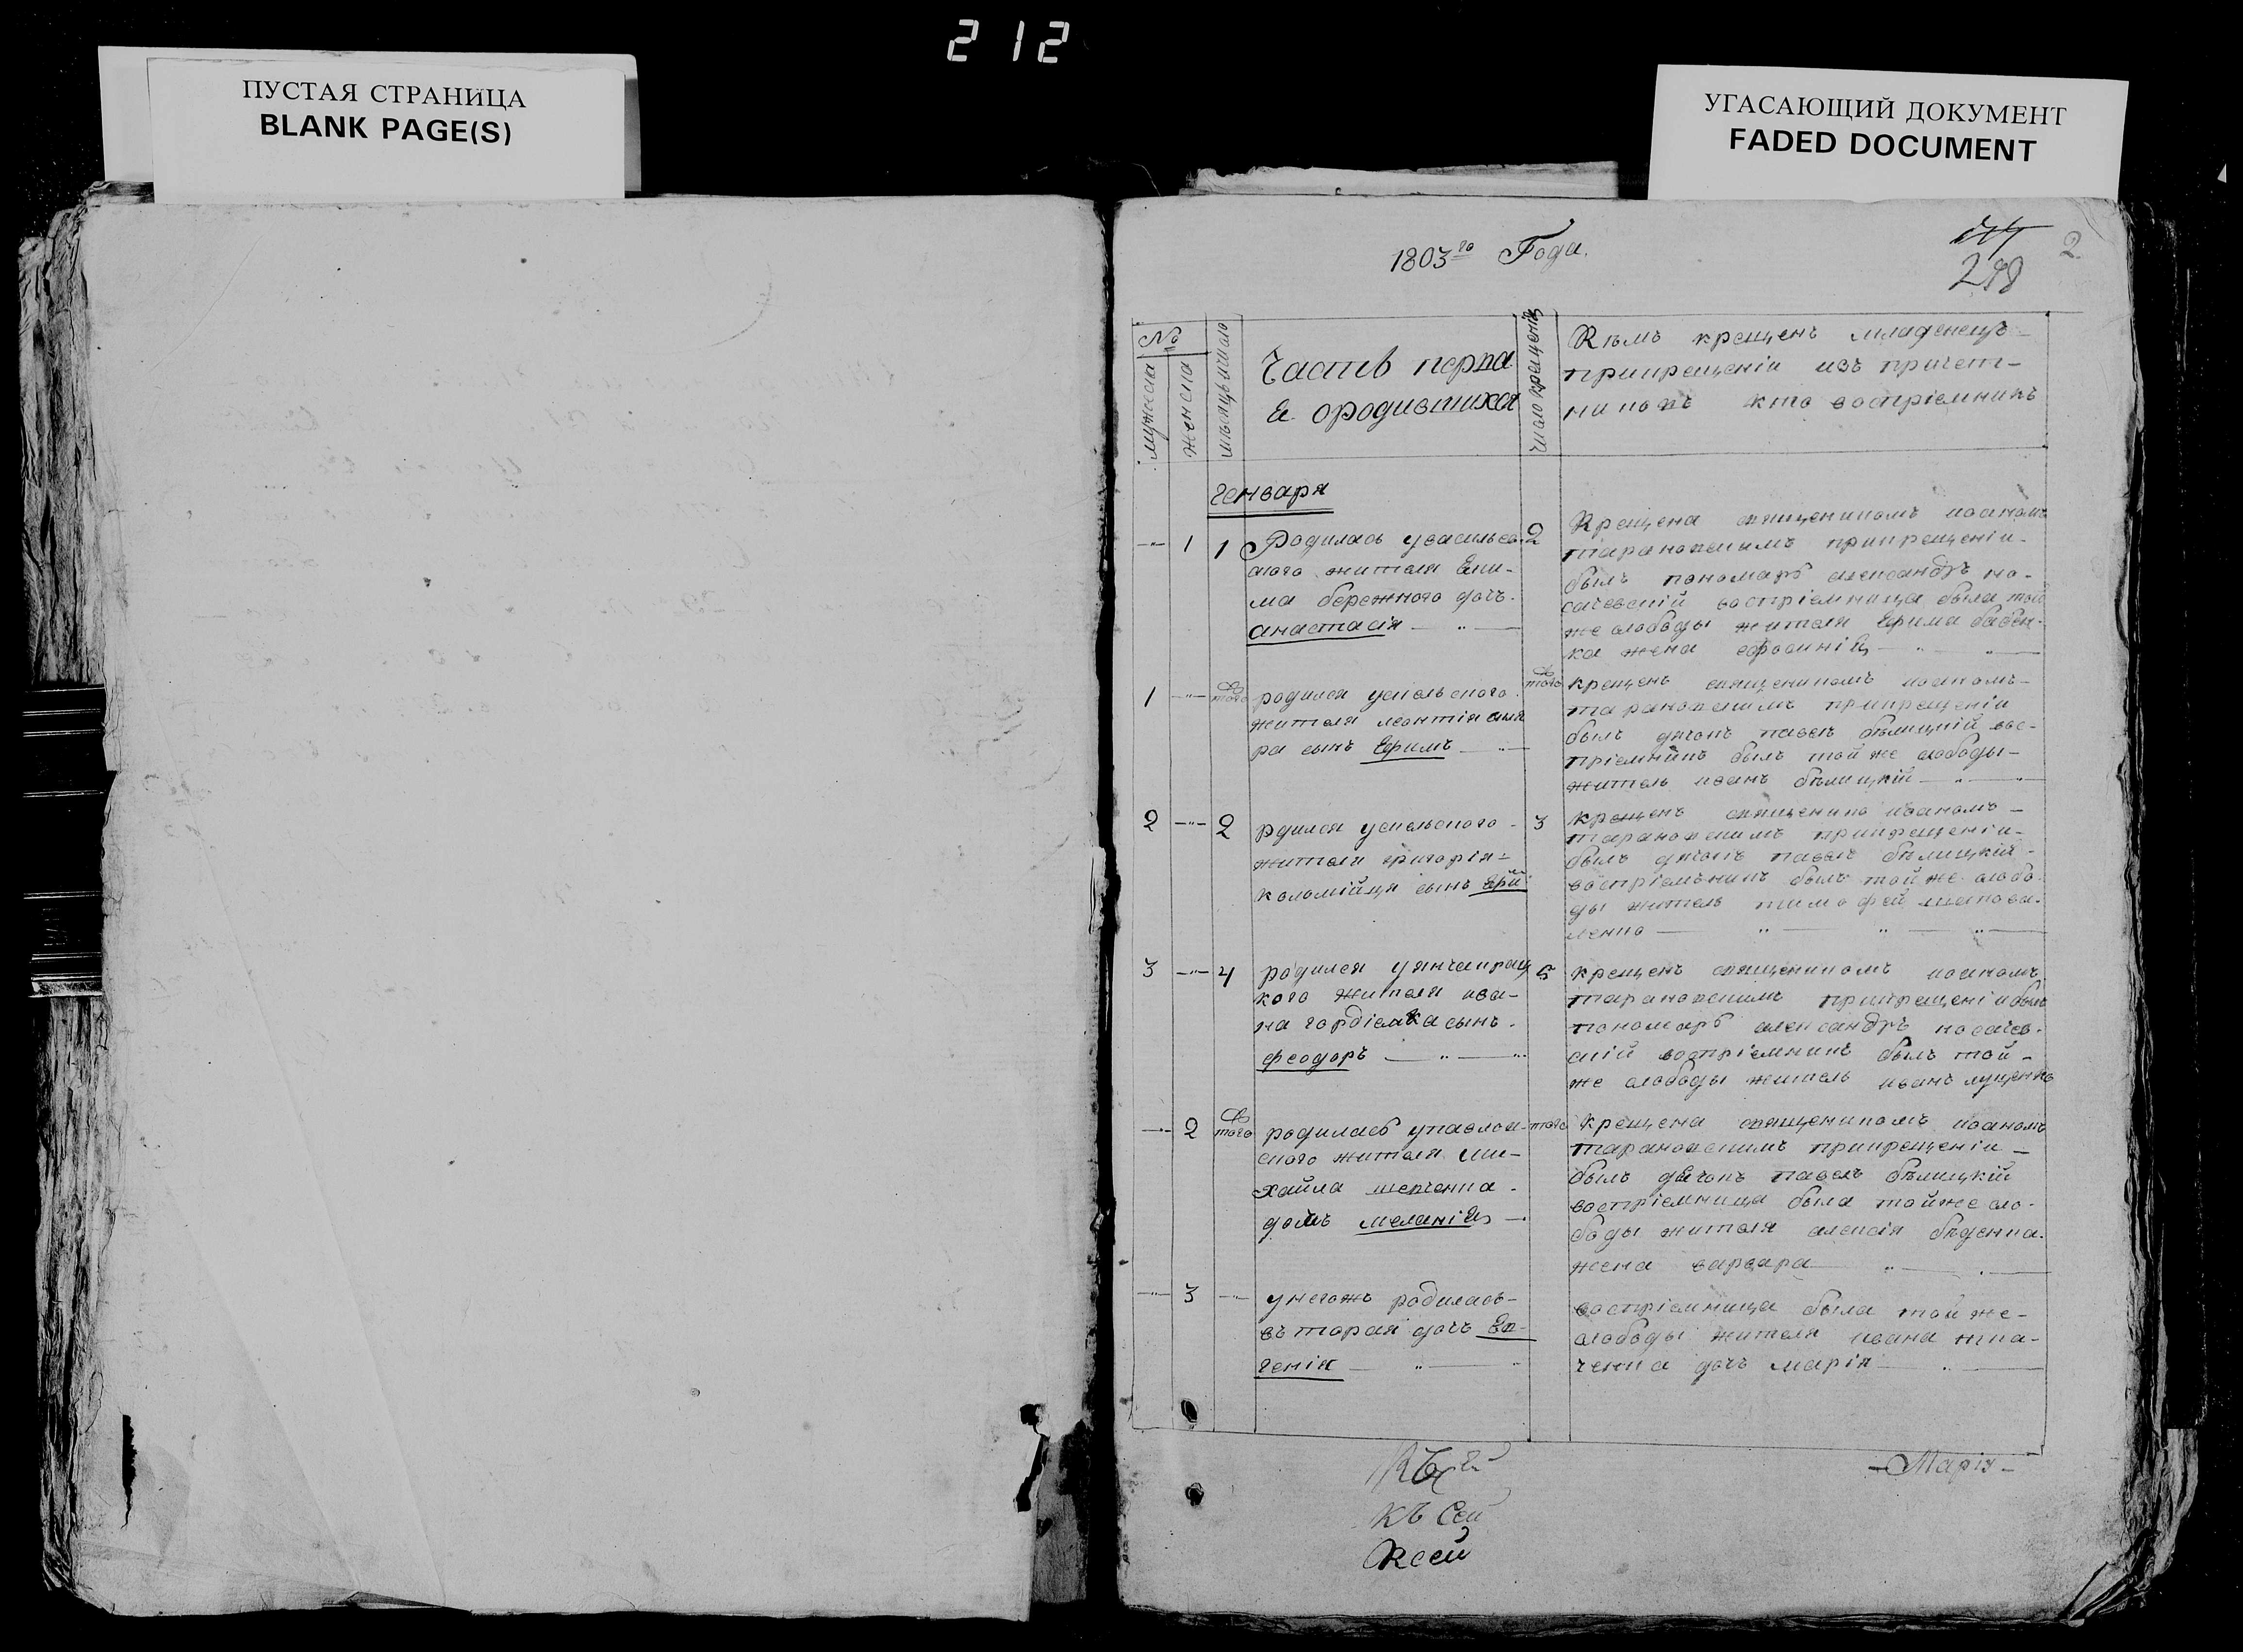 212
ПУСТАЯ СТРАНИЦА
BLANK PAGE(S)
УГАСАЮЩИЙ ДОКУМЕНТ
FADED DOCUMENT
1803го Года.
2
298
№
мужеска
женска
мѣсяцъ и число
Часть перва
я ородившихся
число крещенія
Кѣмъ крещенъ младенецъ
прикрещеніи изъ причет-
никовъ кто воспріемникъ
генваря
1 1 Родилась увасильев-
скаго жителя Яки-
ма бережного дочь
анастасія
2
Крещена священикомъ иоаномъ
тарановскимъ прикрещеніи
былъ пономарь александръ но-
сачевскій воспріемница была той
же слободы жителя Ефима бабен-
ка жена ефросинія
1 того родился усколского
жителя леонтія
ра сынъ Ефимъ
того
крещенъ священикомъ иоаномъ
тарановскимъ прикрещеніи
былъ дячокъ павелъ бѣлицкій вос-
пріемникъ былъ той же слободы
житель иванъ бѣлицкій
2 2 рдился усколского
жителя григорія
коломійця сынъ
3
крещенъ священико иоаномъ
тарановскимъ прикрещеніи
былъ дячокъ павелъ бѣлицкій
воспріемникъ былъ той же слобо-
ды житель тимофей шапова-
ленко
3 4 родился
кого жителя ива-
на гордіенка сынъ
феодоръ
5
крещенъ священикомъ иоаномъ
тарановскимъ прикрещеніи былъ
пономарь александръ носачев-
скій воспріемникъ былъ той
же слободы житель иванъ луценко
2 того родилась упавлов-
ского жителя ми-
хайла шевченка
дочь меланія
того
крещена священикомъ иоаномъ
тарановскимъ прикрещеніи
былъ дячокъ павелъ бѣлицкій
воспріемница была тойже сло-
боды жителя алексія бѣденка
жена варвара
3 унегожъ родилась
вторая дочь Ев-
генія
воспріемница была той же
слободы жителя ивана тка-
ченка дочь марія
Марія
къ Сей
Ксей